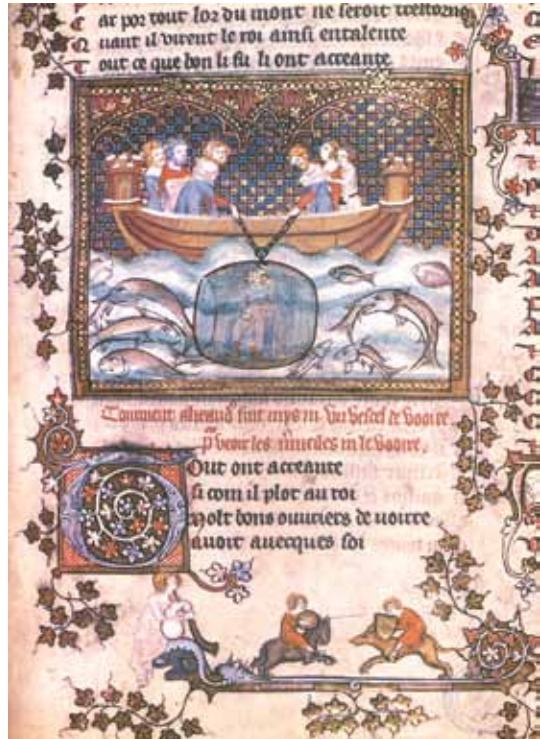 ar por tout lor du mont ne seroit trestorne
uant il virent le roi ainsi entalente
out ce que bon li fu li ont acreante
Comment alixand fut mys in vn vessel de vooire
p veoir les mueilles in le vooire
Out ont acreante
si com il plot au roi
molt bons ouuriers de uoirre
auoit auecques soi